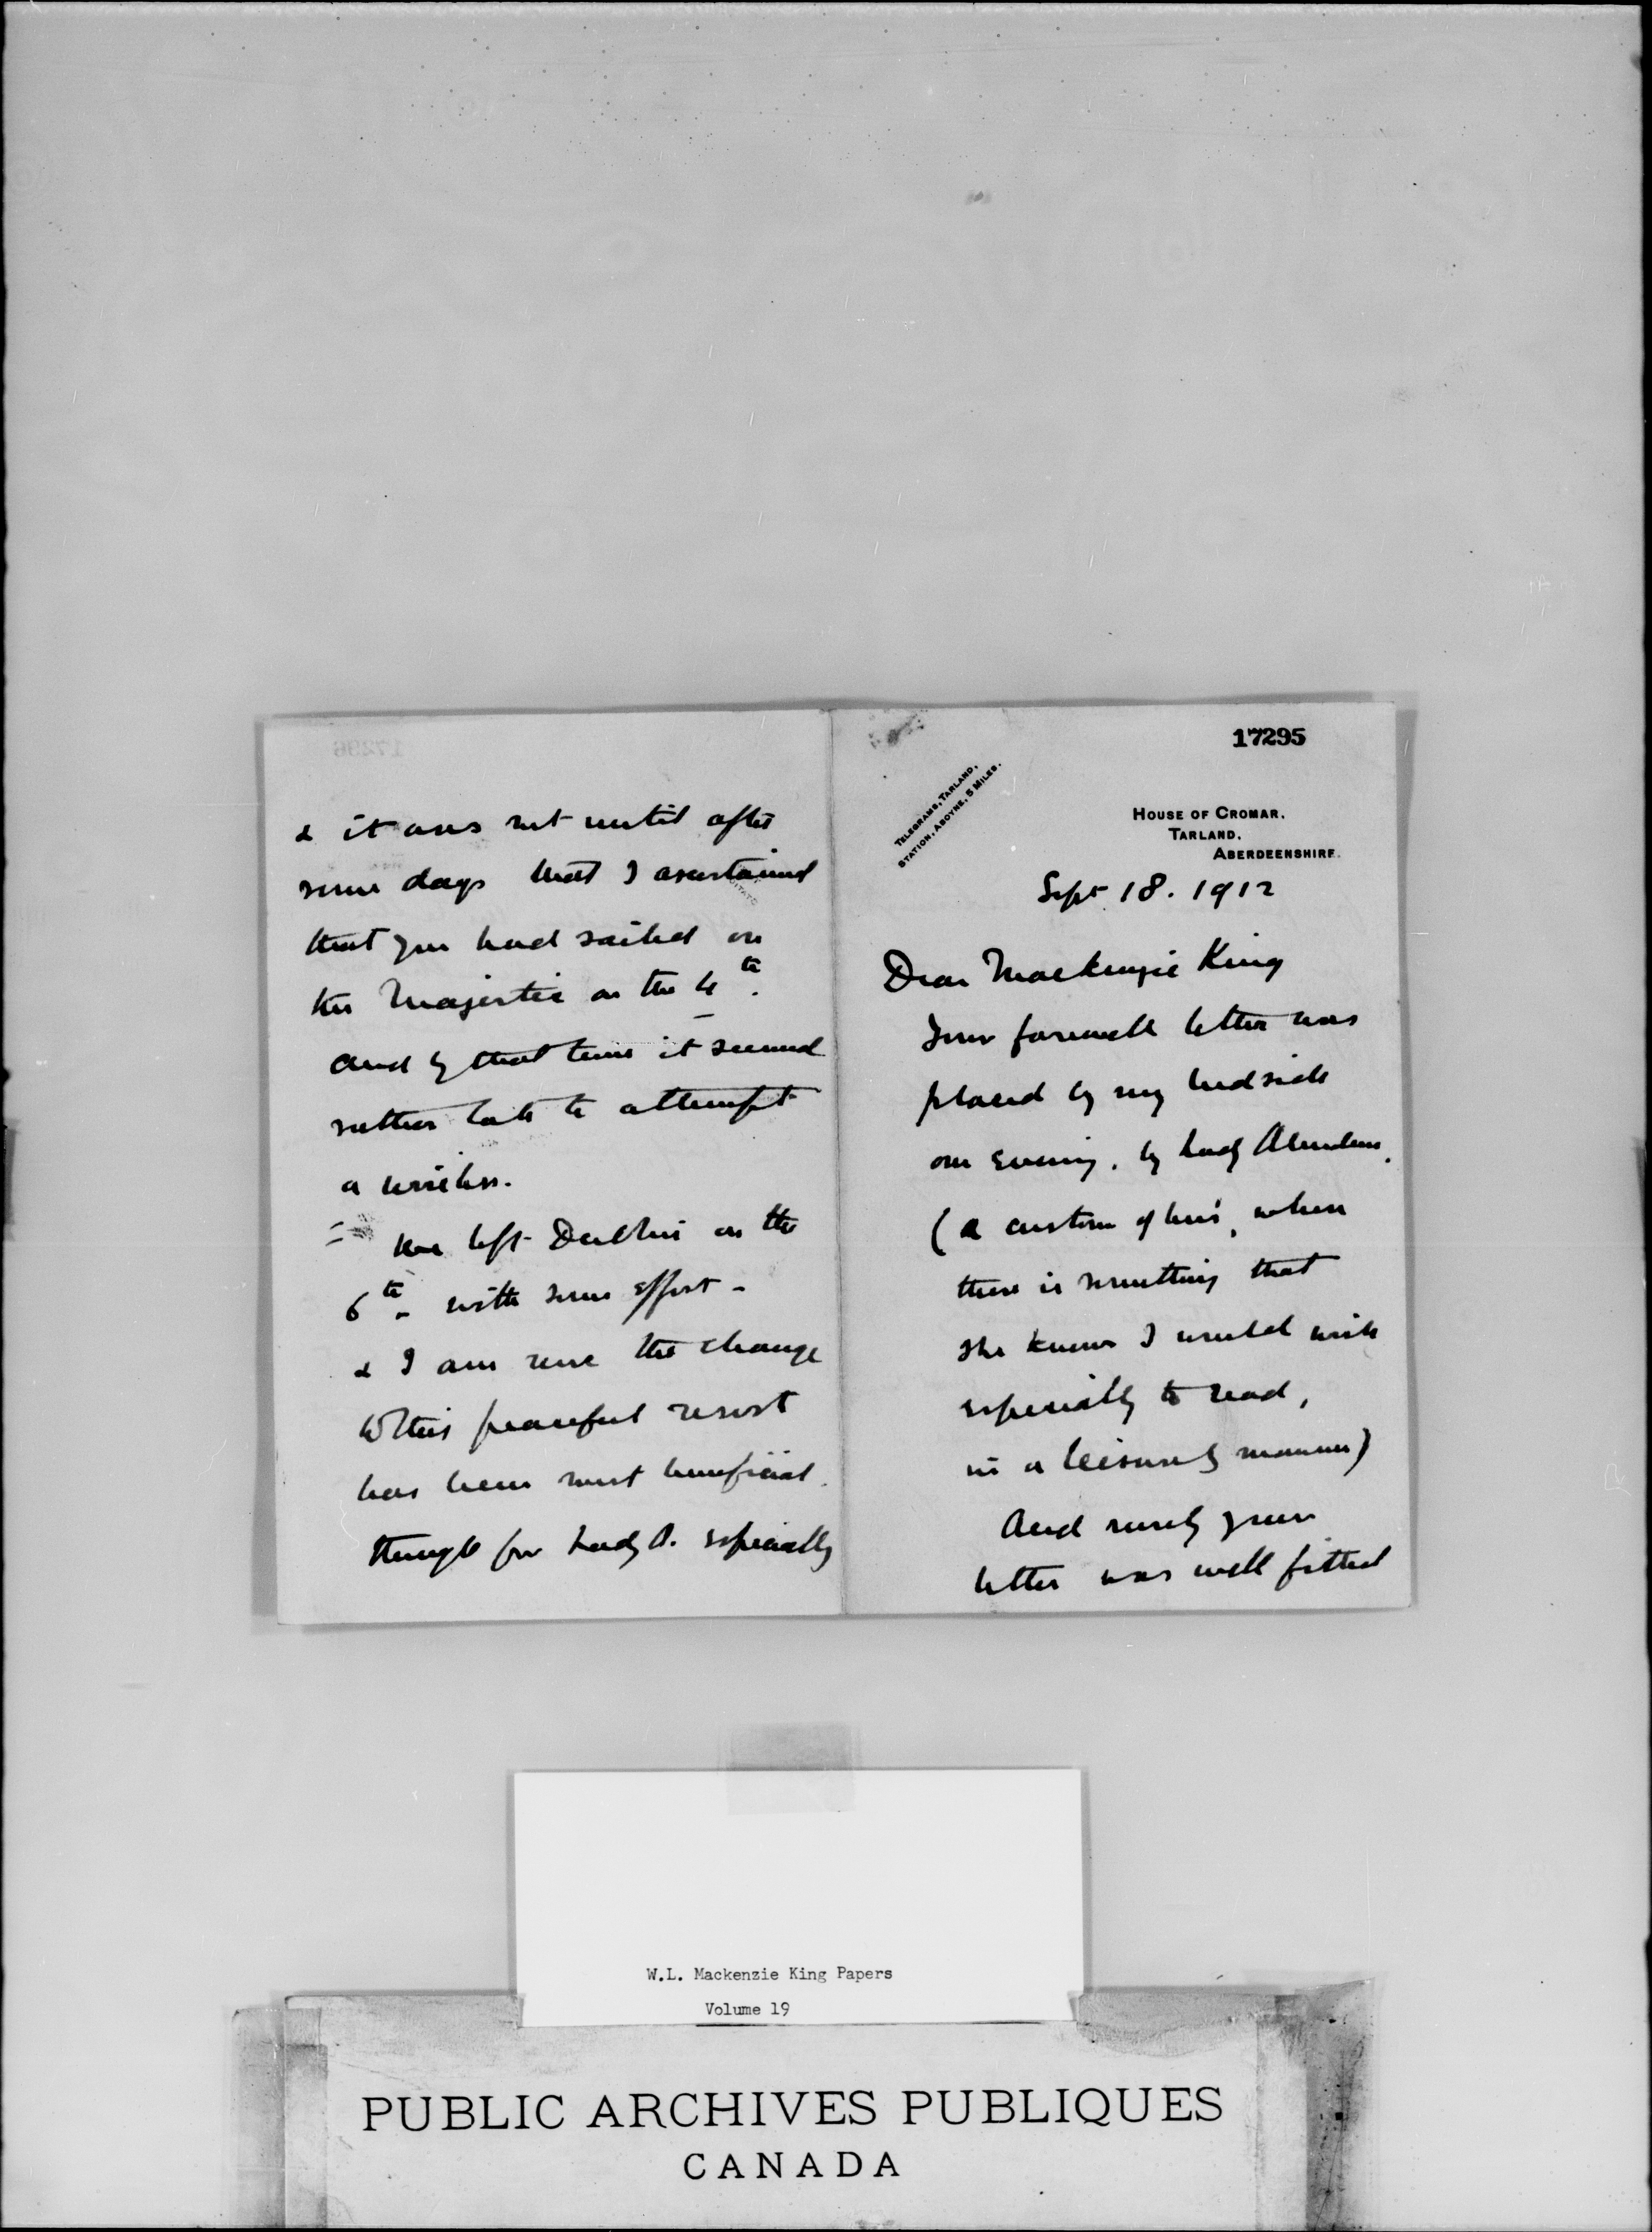 & it was not until after
some days that I ascertained
that you had sailed on
the Majestic on the 4th.
and by that time it seemed
rather late to attempt
a wireless.
We left Dublin on the
6th - with some effort -
& I am sure the change
to this peaceful resort
has been most beneficial.
though for Lady A. especially
17295
TELEGRAMS, TARLAND.
STATION, ABOYNE, 5 MILES.
HOUSE OF CROMAR.
TARLAND.
ABERDEENSHIRE.
Sept 18. 1912
Dear Mackenzie King
Your farewell letter was
placed by my bedside
one evening, by Lady Aberdeen.
(a custom of hers, when
there is something that
she knows I would wish
especially to read,
in a leisurely manner)
And surely your
letter was well fitted
W.L. Mackenzie King Papers
Volume 19
PUBLIC ARCHIVES PUBLIQUES
CANADA